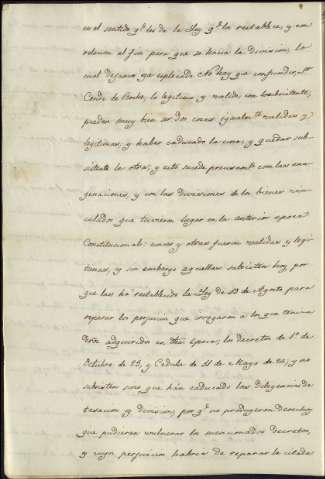 en el sentido q.e les da la Ley q.e lo restablece, y con
relacion al fin para que se hacia la division, la
cual dejamos ya esplicada. No hay que confundir, Sr
Conde de Parke, lo legitimo y valido, con lo subsistente;
pueden muy bien ser dos cosas igualm.te validas y
legitimas, y haber caducado la una, y quedar sub-
sistente la otra; y esto sucede precisam.te con las ena-
genaciones, y con las divisiones de los bienes vin-
culados que tuvieron lugar en la anterior epoca
Constitucional: unas y otras fueron validas y legi-
timas, y sin embargo aquellas subsisten hoy por
que las ha restablecido la Ley de 19 de Agosto para
reparar los perjuicios que irrogaron a los que tenian
dros adquiridos en dha epoca, los decretos de 1.º de
Octubre de 23, y Cedula de 11 de Marzo de 24; y no
subsisten sino que han caducado las diligencias de
tasacion y division, por q.e no produgeron derechos
que pudieran vulnerar los mencionados decretos,
y cuyo perjuicio hubiera de reparar la citada